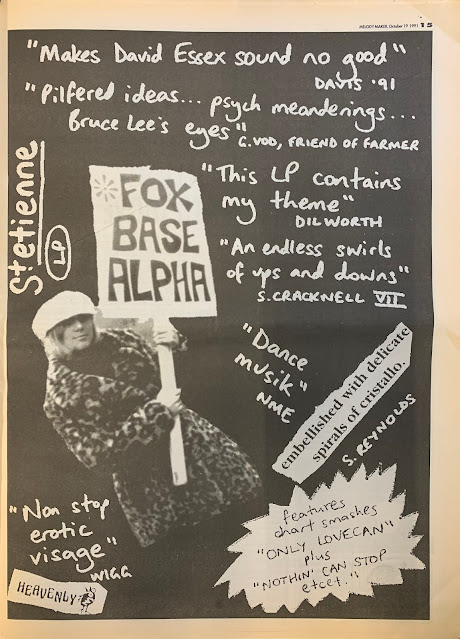 MELODY MAKER, October 19 1991 15
"Makes David Essex sound no good"
DAVIS '91
"Pilfered ideas... psych meanderings...
Bruce Lee's eyes"
G. VOD, FRIEND OF FARMER
St etienne
LP
FOX
BASE
ALPHA
"This LP contains
my theme"
DILWORTH
"An endless swirls
of ups and downs"
S. CRACKNELL VII
"Dance
musik"
NME
embellished with delicate
spirals of cristallo.
S. REYNOLDS
"Non stop
erotic
visage"
WIGG
HEAVENLY
features
chart smashes
"ONLY LOVECAN"
plus
"NOTHIN' CAN STOP
etcet."